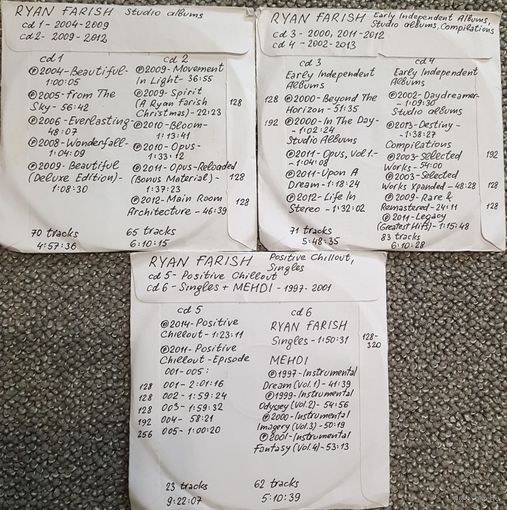 RYAN FARISH Studio albums
cd 1 - 2004-2009
cd 2 - 2009-2012
cd 1
℗2004-Beautiful-
1:00:05
℗2005-From The
Sky - 56:42
℗2006-Everlasting-
48:07
℗2008-Wonderfall-
1:04:09
℗2009-Beautiful
(Deluxe Edition)-
1:08:30
70 tracks
4:57:36
cd 2
℗2009-Movement
In Light - 36:55
℗2009-Spirit
(A Ryan Farish
Christmas) - 22:23
128
℗2010-Bloom-
1:13:41
℗2010-Opus-
1:33:12
℗2011-Opus-Reloaded
(Bonus Material)-
128
1:37:23
℗2012-Main Room
Architecture - 46:39
128
65 tracks
6:10:15
RYAN FARISH Early Independent Albums,
Studio albums, Compilations
cd 3 - 2000, 2011-2012
cd 4 - 2002-2013
cd 3
Early Independent
Albums
128
℗2000-Beyond The
Horizon - 51:35
192
℗2000-In The Day-
- 1:02:24
Studio Albums
℗2011-Opus, Vol.1-
- 1:04:08
℗2011-Upon A
Dream - 1:18:24
℗2012-Life In
Stereo - 1:32:02
71 tracks
5:48:35
cd 4
Early Independent
Albums
℗2002-Daydreamer-
- 1:09:30
Studio albums
℗2013-Destiny-
- 1:38:27
Compilations
℗2003-Selected
192
Works - 54:00
℗2003-Selected
Works Xpanded - 48:28
128
℗2009-Rare &
Remastered - 24:11
128
℗2011-Legacy
(Greatest Hits) - 1:15:48
83 tracks
6:10:28
RYAN FARISH Positive Chillout,
Singles
cd 5 - Positive Chillout
cd 6 - Singles + MEHDI - 1997-2001
cd 5
℗2014-Positive
Chillout - 1:23:11
℗2011-Positive
Chillout-Episode
001-005:
128 001 - 2:01:16
128 002 - 1:59:24
128 003 - 1:59:32
192 004 - 58:21
256 005 - 1:00:20
23 tracks
9:22:07
cd 6
RYAN FARISH
Singles - 1:50:31
128-
320
MEHDI
℗1997-Instrumental
Dream (Vol.1) - 41:39
℗1999-Instrumental
Odyssey (Vol.2) - 54:56
℗2000-Instrumental
Imagery (Vol.3) - 50:19
℗2001-Instrumental
Fantasy (Vol.4) - 53:13
62 tracks
5:10:39